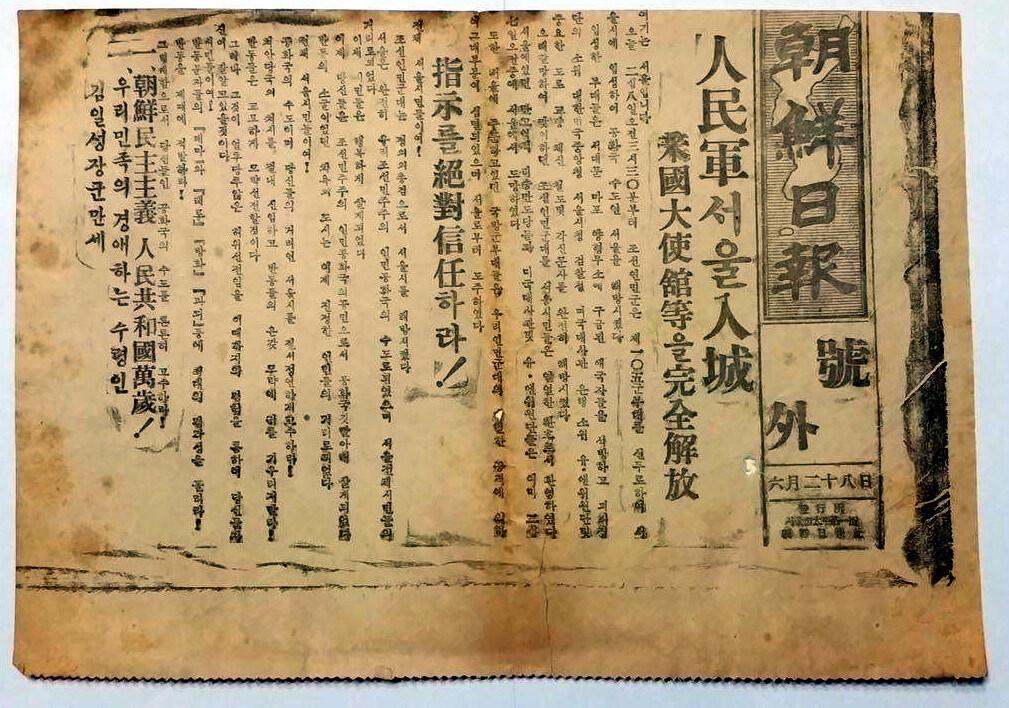 朝鮮日報
號外
六月二十八日
發行所
人民軍서울入城
美國大使館等을完全解放
여기는 서울입니다
오늘 二십八일오전三시三○분부터 조선인민군은 제一○五군부대를 선두로하여 서
울시에 입성하여 공화국 수도인 서울을 해방시켰다
입성한 부대들은 서대문 마포 양형무소에 구금된 애국자들을 석방하고 괴뢰집
단의 소위 대한민국중앙청 서울시청 검찰청 미국대사관 은행 소위 유·엔위원단및
중요한 도로 교량 체신 철도및 각신문사를 완전히 해방시켰다
오래갈망하여 맞이하던 조선인민군대를 서울시민들은 열열한 환호로서 환영하였다
서울에있던 리승만도당들과 미국대사관및 유·엔위원단들은 이미 二십
七일오전중에 서울에서 도망하였다
또한 서울에 주둔하고있던 국방군부대들은 우리인민군대의
그대부분이 섬멸되었으며 서울로부터 도주하였다
指示를絶對信任하라!
친애하는 서울시민들이여!
조선인민군대는 정의의총검으로서 서울시를 해방시켰다
서울은 완전히 우리조선민주주의 인민공화국의 수도로되였으며 서울전체시민들의
거리로되였다
이제 당신들은 행복하게 살게되였다
이제 당신들은 조선민주주의 인민공화국의공민으로서 공화국깃발아래 살게되였다
반동의 소굴이였던 도시는 이제 진정한 인민들의 거리로되였다
전체 서울시민들이여!
공화국의 수도며 당신들의 거리인 서울시를 질서정연하게고수하라!
최악당국의 처사를 절대 신임하고 반동들의 온갖 모략에 귀를 기우리지말라!
반동들은 교묘하게 모략선전할것이다
그러나 그것이 얼투당투않은 허위선전임을 여태까지의 경험을 통하여 당신들은
잘알고있을것이다
시민들이여!
반동분자들의 『매략』와 『테로』 『방화』 『파괴』등에 최대의 경각성을 돌리라!
반동을 제때에 적발하라!
당신들인 공화국의 수도를 튼튼히 고수하라!
一、朝鮮民主主義 人民共和國萬歲!
一、우리민족의경애하는 수령인
김일성장군만세